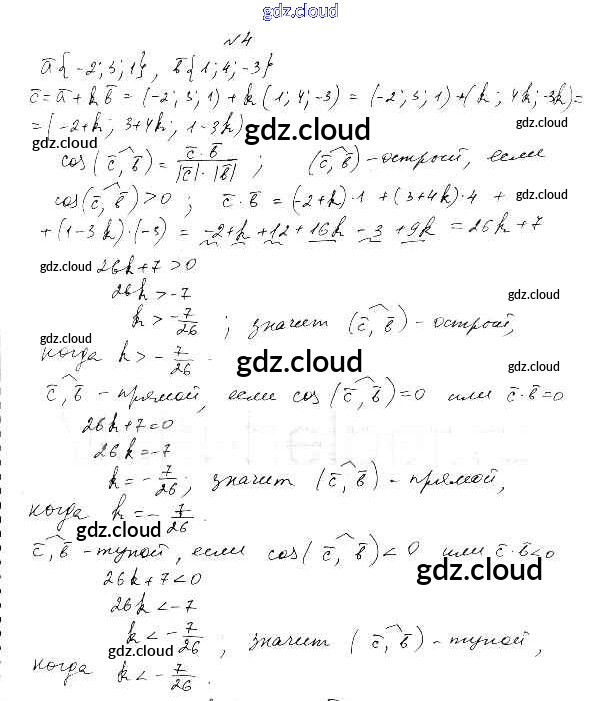 gdz.cloud
gdz.cloud
№4
ā{-2; 3; 1}, b̄{1; 4; -3}
c̄ = ā + k b̄ = (-2; 3; 1) + k (1; 4; -3) = (-2; 3; 1) + (k; 4k; -3k) =
= (-2+k; 3+4k; 1-3k) gdz.cloud gdz.cloud
gdz.cloud
cos(c̄, b̄) = c̄·b̄ / |c̄|·|b̄| ; (c̄, b̄) - острый, если
cos(c̄, b̄) > 0 ; c̄·b̄ = (-2+k)·1 + (3+4k)·4 + gdz.cloud
+ (1-3k)·(-3) = -2+k+12+16k-3+9k = 26k+7
gdz.cloud 26k+7>0
26k > -7 gdz.cloud
k > -7/26 ; значит (c̄, b̄) - острый,
gdz.cloud
когда k > -7/26. gdz.cloud
c̄, b̄ - прямой, если cos(c̄, b̄) = 0 или c̄·b̄ = 0
26k+7=0
26k = -7
k = -7/26; значит (c̄, b̄) - прямой,
когда k = -7/26.
gdz.cloud
c̄, b̄ - тупой, если cos(c̄, b̄) < 0 или c̄·b̄ < 0
gdz.cloud
26k+7<0
26k < -7
k < -7/26 ; значит (c̄, b̄) - тупой,
gdz.cloud
когда k < -7/26.